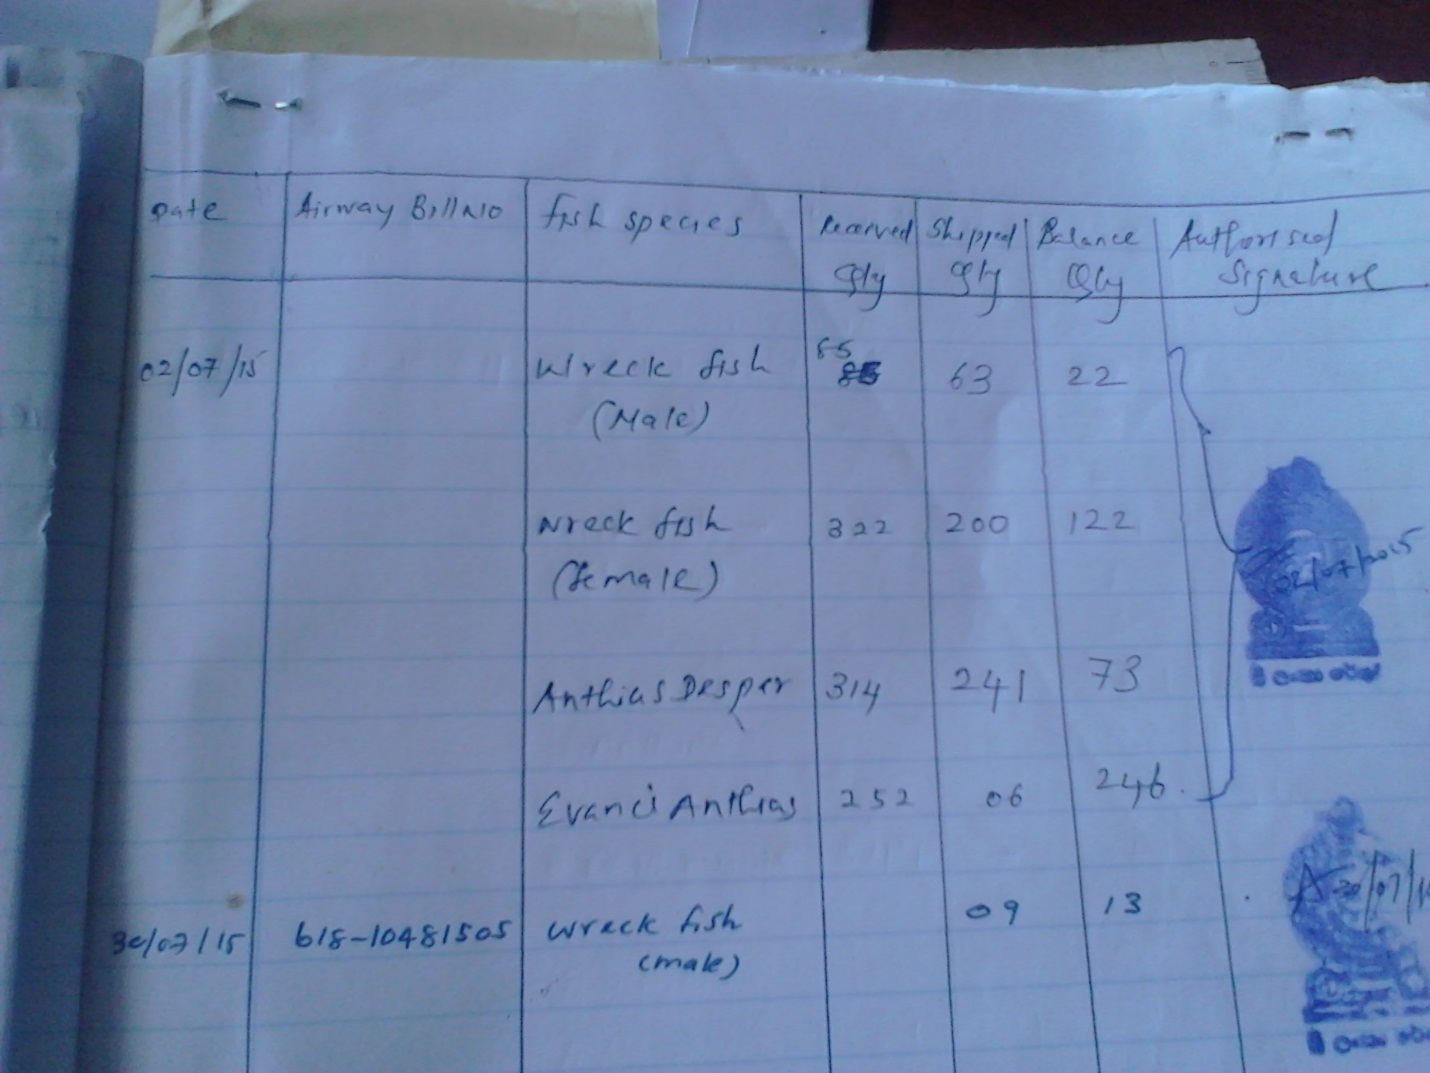 Date Airway Bill No fish species Received Qty Shipped Qty Balance Qty Authorised Signature
02/07/15 Wreck fish (Male) 85 63 22
Wreck fish (female) 322 200 122
02/07/2015
Anthias Desper 314 241 73
Evanc's Anthias 252 06 246.
30/07/15 618-10481505 Wreck fish (male) 09 13